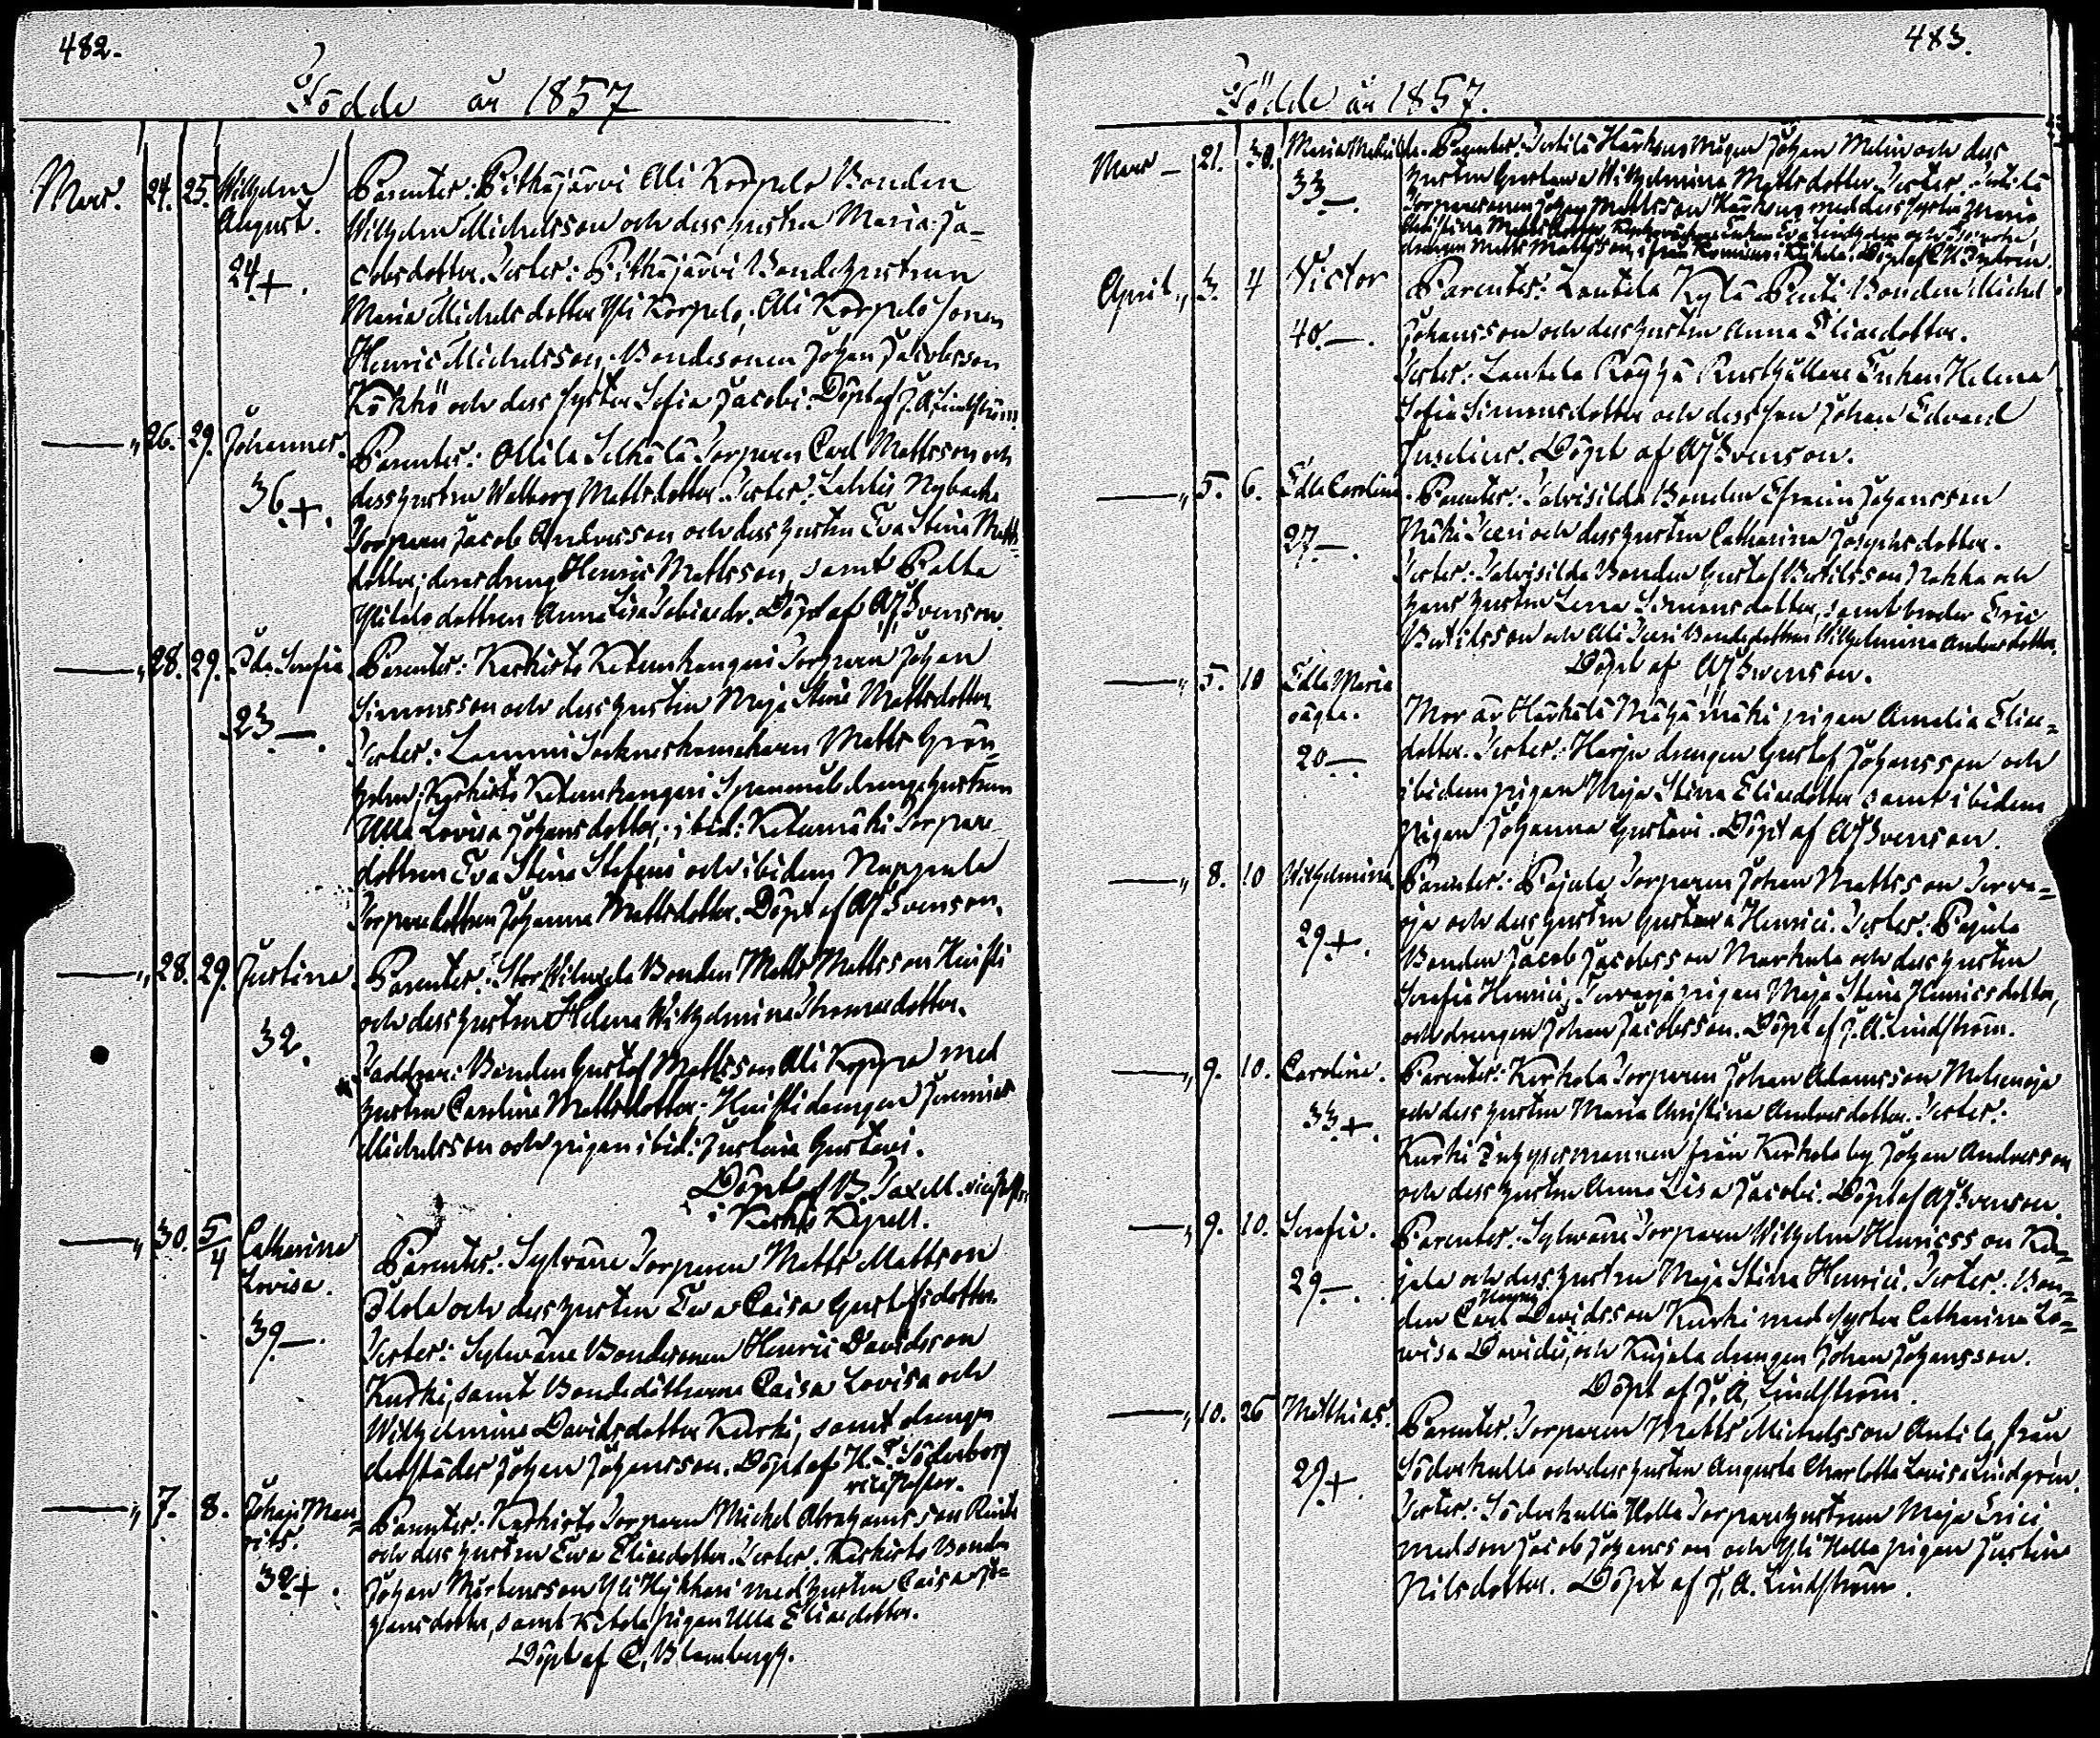 482.
Födde år 1857
Mars. 24. 25. Wilhelm August. 24.+.
Parenter: Pitkäjärvi Ali Korpelo Bonden
Wilhelm Michelsson och dess hustru Maria Ja-
cobsdotter. Tester: Pitkäjärvi Bondehustrun
Maria Michelsdotter Yli Korpelo, Ali Korpelo sonen
Henric Michelsson, Bondesonen Johan Jacobsson
Kökkö och dess syster Sofia Jacobi. Döpt af J. A. Lindström
— „ 26. 29. Johannes. 36.+.
Parenter: Ollila Torparen Carl Mattsson och
dess hustru Walborg Mattsdotter. Tester: Nybacka
Torparen Jacob Andersson och dess hustru Eva Stina Matts-
dotter; deras dreng Henric Mattsson, samt
dottren Anna Lisa Tobiaedr. Döpt af AJSvenson.
— „ 28. 29. Ida Serafia 23.—.
Parenter: Torparen Johan
Simonsson och dess hustru Maja Stina Mattsdotter
Tester: Lammi Matts Grön-
holm;
Ulla Lovisa Johansdotter; ibid: Ketunmäki Torpare
dottren Eva Stina Stefani och ibidem Nuppula
Torparedottren Johanna Mattsdotter. Döpt af AJSvenson.
— „ 28. 29. Justina. 32.
Parenter: Bonden Matts Mattsson Heisti
och dess hustru Helena Wilhelmina Thomasdotter.
Faddrar: Bonden Gustaf Mattsson Ali Koppa med
hustru Carolina Mattsdotter. Heisti drengen Jeremias
Michelsson och pigan ibid: Justina Gustavi.
Döpt af B. Taxell. vice Pastor
i Kapell.
— „ 30. 5/4 Catharina Lovisa. 39.—.
Parenter: Sylväne Torparen Matts Mattsson
Illola och dess hustru Eva Caisa Gustafsdotter.
Tester: Sylväne Bondesonen Henric Davidsson
Kurki, samt Bondedöttrarne Caisa Lovisa och
Wilhelmina Davidsdotter Kurki, samt drengen
derstädes Johan Johansson. Döpt af H. L. Söderborg
vice Pastor.
— „ 7. 8. Johan Mau- rits. 32+.
Parenter: Torparen Michel Abrahamsson
och dess hustru Eva Eliaedotter. Tester: Bonden
Johan Mårtensson Yli med hustru Caisa Jo-
hansdotter, samt pigan Ulla Eliaedotter.
Döpt af C. Blombergh.
483.
Födde år 1857.
Mars — 21. 30. Maria Mathilda. 33.—.
Parenter: Mågen Johan Melin och dess
hustru Gustava Wilhelmina Mattsdotter. Tester:
Torparesonen Johan Mattsson med dess syster Maria
Christina Mattsdotter,
drengen Matts Mattsson, ifrån
April „ 3. 4 Victor 40.—.
Parenter: Lautela Kylä Penti Bonden Michel
Johansson och dess hustru Anna Eliaedotter.
Tester: Lautela Röyhä Rusthållare Enkan Helena
Sofia Simonsdotter och dess son Johan Edvard
Juselius. Döpt af AJSvenson.
— „ 5. 6. Edla Carolina. 27.—.
Parenter: Talvisilda Bonden Efraim Johansson
Mäki Teeri och dess hustru Catharina Josephsdotter.
Tester: Talvisilda Bonden Gustaf Bertilsson Nokka och
hans hustru Lena Simonsdotter, samt broder Eric
Bertilsson och Ali Teeri Bondedottren Wilhelmina Andersdotter.
Döpt af AJSvenson.
— „ 5. 10 Edla Maria oägta. 20.—
Mor är Härkälä pigan Amalia Eliae-
dotter. Tester: Harju drengen Gustaf Johansson och
ibidem pigan Maja Stina Eliaedotter samt ibidem
pigan Johanna Gustavi. Döpt af AJSvenson.
— „ 8. 10 Wilhelmina 29.+.
Parenter: Pajula Torparen Johan Mattsson Terva-
oja och dess hustru Gustava Henrici. Tester: Pajula
Bonden Jacob Jacobsson Markula och dess hustru
Serafia Henrici, Tervaoja pigan Maja Stina Henricsdotter,
och drengen Johan Jacobsson. Döpt af J. A. Lindström.
— „ 9. 10. Carolina. 33.+.
Parenter: Kerkola Torparen Johan Adamsson Metsenoja
och dess hustru Maria Christina Andersdotter. Tester:
Kurki Inhysesmannen från Kerkola by Johan Andersson
och dess hustru Anna Lisa Jacobi. Döpt af AJSvenson.
— „ 9. 10. Serafia. 29.—.
Parenter: Sylväne Torparen Wilhelm Henricsson Ku-
jala och dess hustru Maja Stina Henrici. Tester: Bon-
den Carl Davidsson Kurki med syster Catharina Lo-
wisa Davidi, och Kujala drengen Johan Johansson.
Döpt af J. A. Lindström.
— „ 10. 26 Mathias. 29.+.
Parenter: Torparen Matts Michelsson Antila från
Söderkulla och dess hustru Augusta Charlotta Lovisa Lindgrén.
Tester: Söderkulla Hella Torparehustrun Maja Erici
med son Jacob Johansson och Yli Hella pigan Justina
Nilsdotter. Döpt af J. A. Lindström.